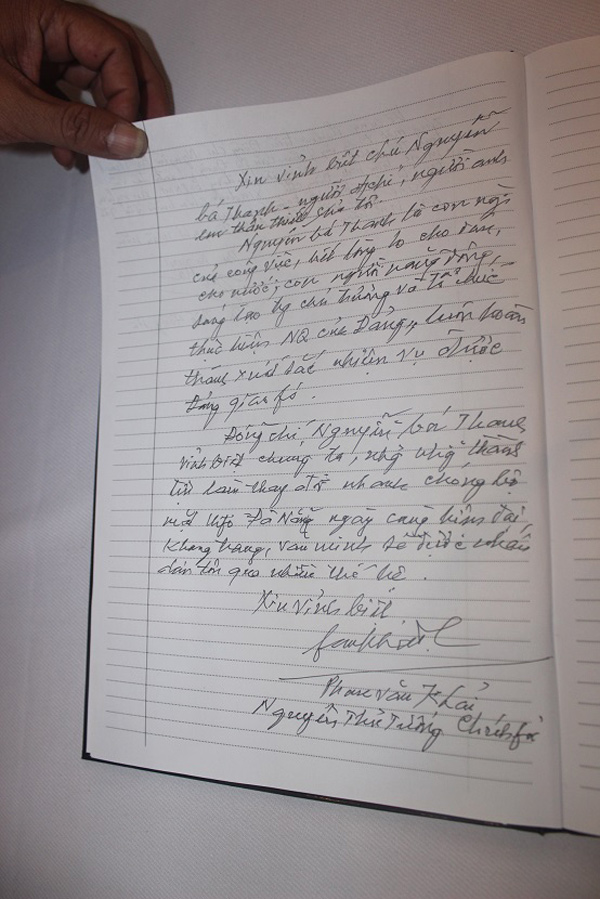 Xin vĩnh biệt chú Nguyễn
bá Thanh - người đ/chí, người anh
em thân thiết của tôi.
Nguyễn bá Thanh là con người
của công việc, hết lòng lo cho dân,
cho nước; con người năng động,
sáng tạo chủ trương và tổ chức
thực hiện NQ của Đảng, luôn hoàn
thành xuất sắc nhiệm vụ được
Đảng giao fó.
Đồng chí Nguyễn bá Thanh
vĩnh biệt chúng ta, những thành
tựu làm thay đổi nhanh chóng bộ
mặt Đà Nẵng ngày càng hiện đại,
khang trang, văn minh sẽ được nhân
dân tôn qua nhiều thế hệ.
Xin vĩnh biệt
Phan Văn Khải
Nguyên Thủ Tướng Chính fủ